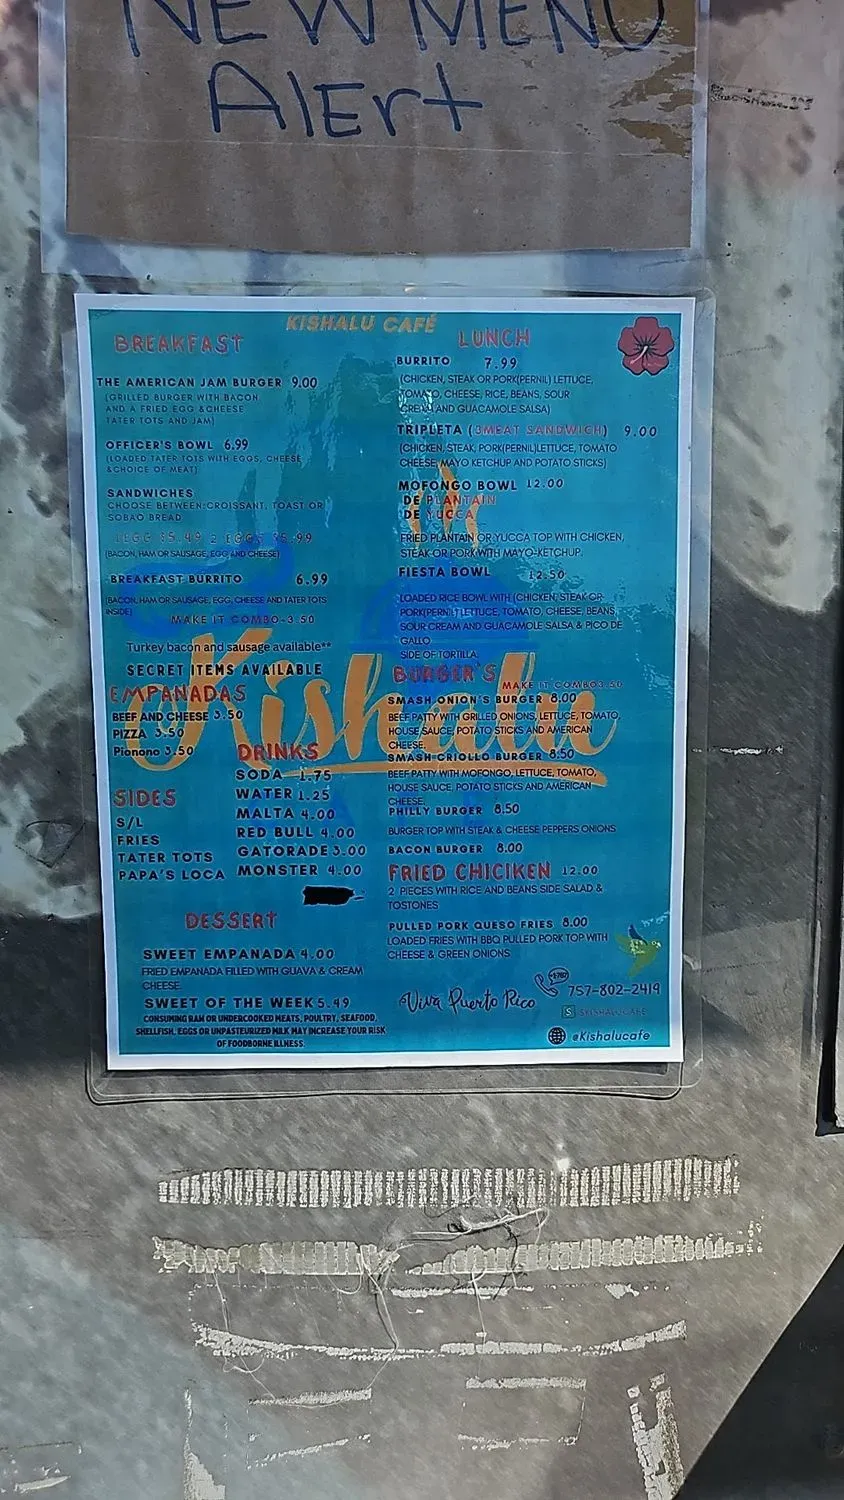 NEW MENU
Alert
KISHALU CAFÉ
BREAKFAST
THE AMERICAN JAM BURGER 9.00
(GRILLED BURGER WITH BACON
AND A FRIED EGG &CHEESE
TATER TOTS AND JAM)
OFFICER'S BOWL 6.99
(LOADED TATER TOTS WITH EGGS, CHEESE
&CHOICE OF MEAT)
SANDWICHES
CHOOSE BETWEEN:CROISSANT, TOAST OR
SOBAO BREAD
1EGG $5.49 2 EGGS $5.99
(BACON, HAM OR SAUSAGE, EGG AND CHEESE)
BREAKFAST BURRITO 6.99
(BACON, HAM OR SAUSAGE, EGG, CHEESE AND TATER TOTS
INSIDE)
MAKE IT COMBO-3.50
Turkey bacon and sausage available**
SECRET ITEMS AVAILABLE
EMPANADAS
BEEF AND CHEESE 3.50
PIZZA 3.50
Pionono 3.50
SIDES
S/L
FRIES
TATER TOTS
PAPA'S LOCA
DRINKS
SODA 1.75
WATER 1.25
MALTA 4.00
RED BULL 4.00
GATORADE 3.00
MONSTER 4.00
DESSERT
SWEET EMPANADA 4.00
FRIED EMPANADA FILLED WITH GUAVA & CREAM
CHEESE.
SWEET OF THE WEEK 5.49
CONSUMING RAW OR UNDERCOOKED MEATS, POULTRY, SEAFOOD,
SHELLFISH, EGGS OR UNPASTEURIZED MILK MAY INCREASE YOUR RISK
OF FOODBORNE ILLNESS.
LUNCH
BURRITO 7.99
(CHICKEN, STEAK OR PORK(PERNIL) LETTUCE,
TOMATO, CHEESE, RICE, BEANS, SOUR
CREAM AND GUACAMOLE SALSA)
TRIPLETA (3MEAT SANDWICH) 9.00
(CHICKEN, STEAK, PORK(PERNIL)LETTUCE, TOMATO
CHEESE, MAYO KETCHUP AND POTATO STICKS)
MOFONGO BOWL 12.00
DE PLANTAIN
DE YUCCA
FRIED PLANTAIN OR YUCCA TOP WITH CHICKEN,
STEAK OR PORK WITH MAYO-KETCHUP.
FIESTA BOWL 12.50
LOADED RICE BOWL WITH (CHICKEN, STEAK OR
PORK(PERNIL) LETTUCE, TOMATO, CHEESE, BEANS,
SOUR CREAM AND GUACAMOLE SALSA & PICO DE
GALLO
SIDE OF TORTILLA.
BURGER'S
MAKE IT COMBO3.50
SMASH ONION'S BURGER 8.00
BEEF PATTY WITH GRILLED ONIONS, LETTUCE, TOMATO,
HOUSE SAUCE, POTATO STICKS AND AMERICAN
CHEESE.
SMASH CRIOLLO BURGER 8.50
BEEF PATTY WITH MOFONGO, LETTUCE, TOMATO,
HOUSE SAUCE, POTATO STICKS AND AMERICAN
CHEESE.
PHILLY BURGER 8.50
BURGER TOP WITH STEAK & CHEESE PEPPERS ONIONS
BACON BURGER 8.00
FRIED CHICIKEN 12.00
2 PIECES WITH RICE AND BEANS SIDE SALAD &
TOSTONES
PULLED PORK QUESO FRIES 8.00
LOADED FRIES WITH BBQ PULLED PORK TOP WITH
CHEESE & GREEN ONIONS.
Viva Puerto Rico
757-802-2419
$KISHALUCAFE
@Kishalucafe
Kishalu